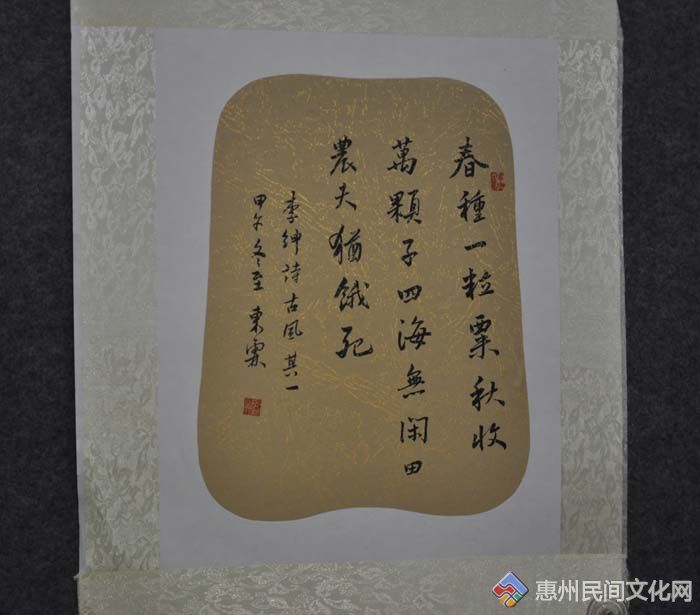 春種一粒粟秋收
萬顆子四海無閑田
農夫猶餓死
李紳詩古風其一
甲午冬至東霖
惠州民间文化网